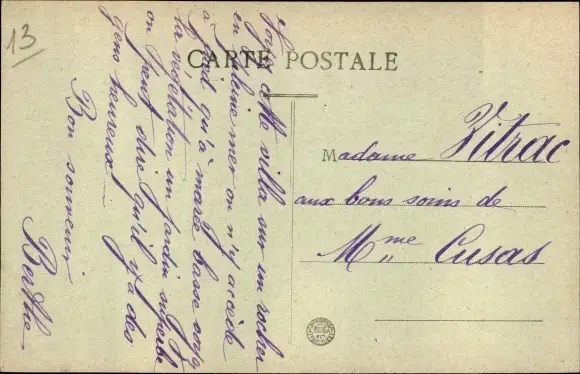 13
CARTE POSTALE
Voyez cette villa sur un rocher
en pleine mer on n'y accède
à pied qu'à marée basse
la végétation un jardin superbe
on peut dire qu'il y a des
gens heureux!
Bon souvenir
Berthe
Madame Vitrac
aux bons soins de
Mme Cusas